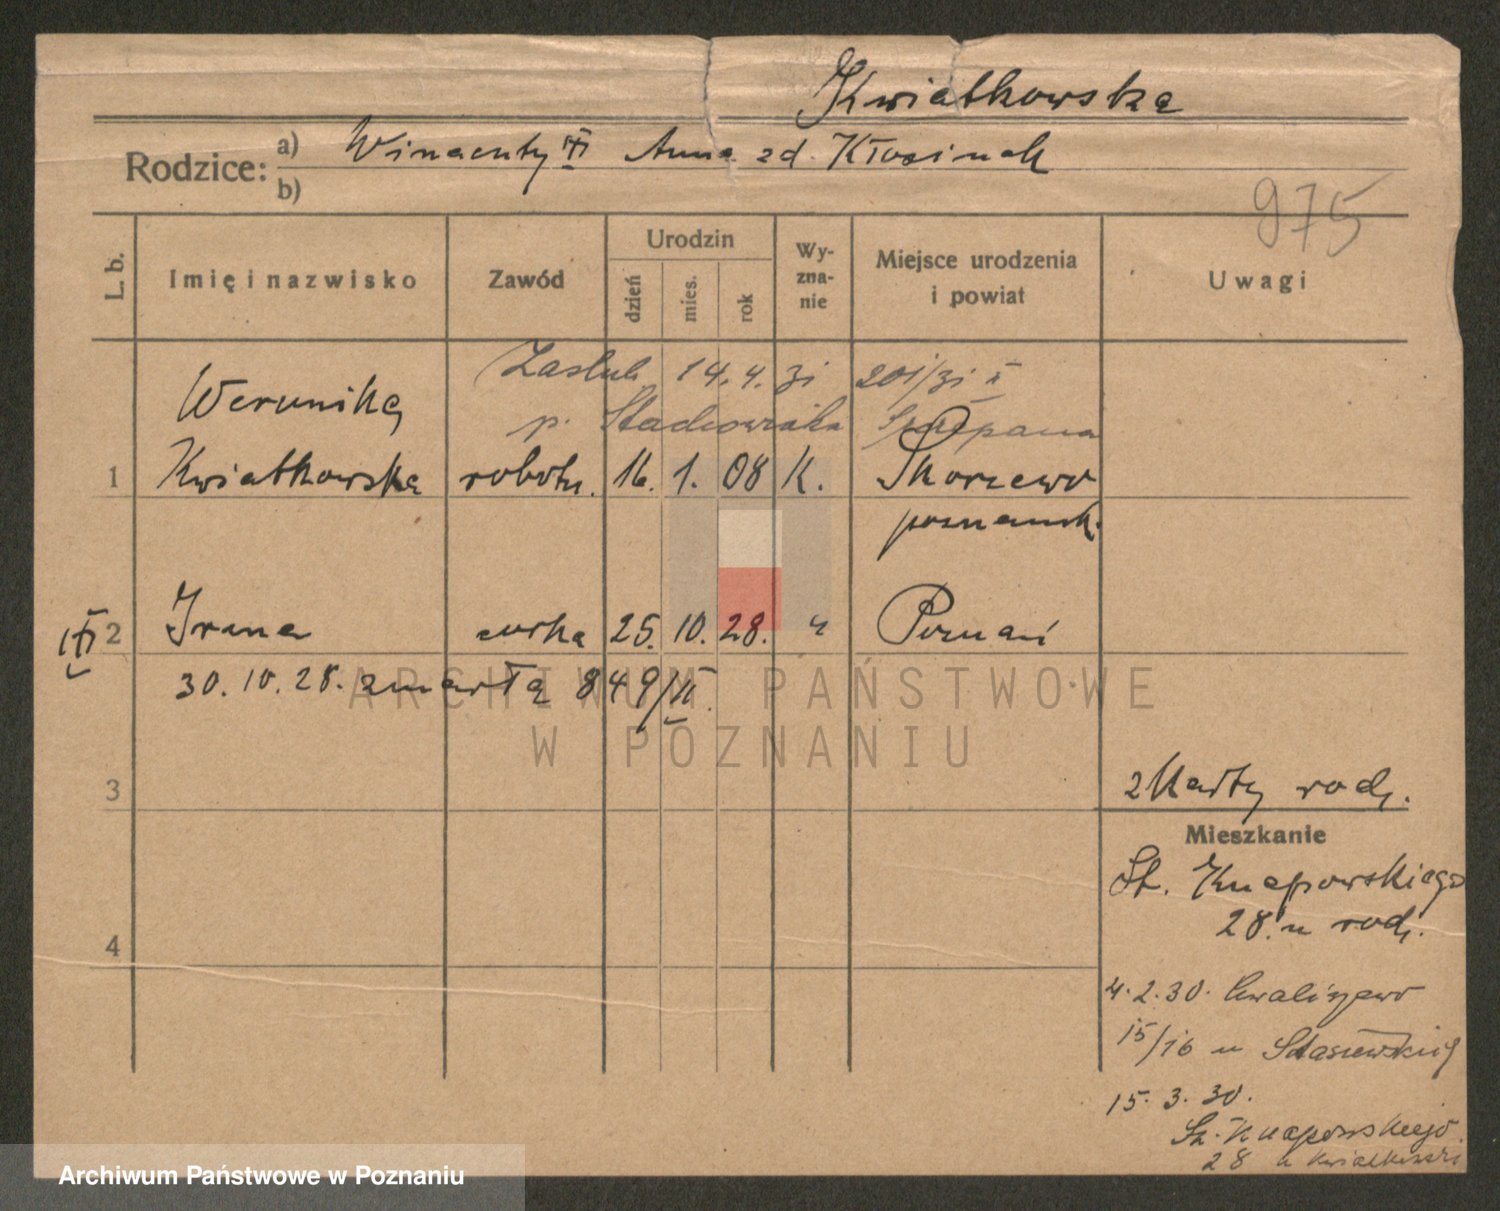 Kwiatkowska
Rodzice: a) Wincenty Anna zd. Kłosinek
b)
975
L. b. Imię i nazwisko Zawód Urodzin dzień mies. rok Wy- zna- nie Miejsce urodzenia i powiat Uwagi
Zaślub 14.4.31 201/31 II
p. Stachowiaka Szczepana
Weronika
1 Kwiatkowska robotn. 16. 1. 08 K. Skorzewo
poznańsk.
2 Irena córka 25. 10. 28. " Poznań
30.10.28. zmarła 849/II
ARCHIWUM PAŃSTWOWE
W POZNANIU
3
z Karty rodz.
Mieszkanie
4
St. Knapowskiego
28 u rodz.
4.2.30. Chwaliszewo
15/16 u Stasiewskiej
15.3.30.
St. Knapowskiego
28 u Kwiatkowski
Archiwum Państwowe w Poznaniu